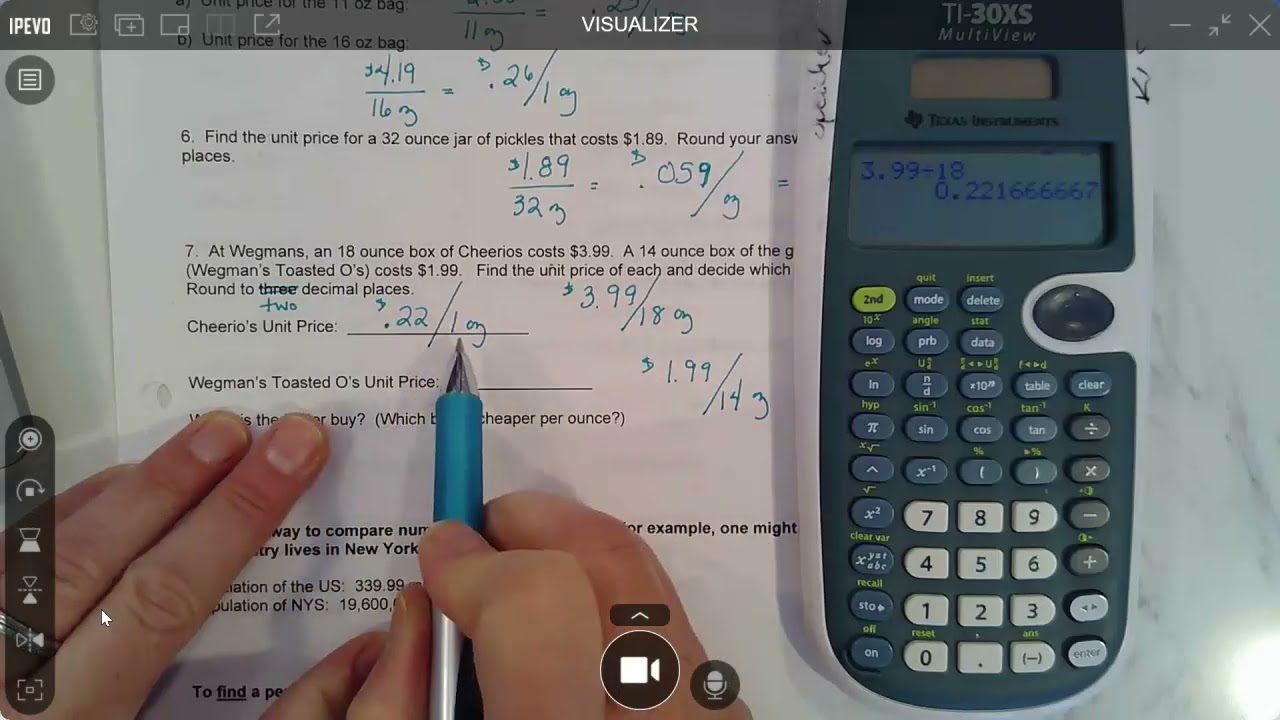 IPEVO
VISUALIZER
TI-30XS
MultiView
TEXAS INSTRUMENTS
a) Unit price for the 11 oz bag:
11 oz
b) Unit price for the 16 oz bag:
$4.19 / 16 oz = $.26/1 oz
6. Find the unit price for a 32 ounce jar of pickles that costs $1.89. Round your
places.
$1.89 / 32 oz = $.059/oz =
7. At Wegmans, an 18 ounce box of Cheerios costs $3.99. A 14 ounce box of the
(Wegman's Toasted O's) costs $1.99. Find the unit price of each and decide which
Round to three decimal places.
two
Cheerio's Unit Price: $.22/1 oz
$3.99/18 oz
Wegman's Toasted O's Unit Price:
$1.99/14 oz
is the buy? (Which cheaper per ounce?)
way to compare or example, one might
lives in New York
of the US: 339.99
of NYS: 19,600,
To find a
3.99÷18
0.221666667
quit insert
2nd mode delete
10ˣ angle stat
log prb data
eˣ
ln n/d ×10ⁿ table clear
hyp sin⁻¹ cos⁻¹ tan⁻¹ K
π sin cos tan ÷
%
^ x⁻¹ ( ) ×
√
x² 7 8 9 −
clear var
x yzt abc 4 5 6 +
recall
sto▸ 1 2 3
off reset , ans
on 0 . (−) enter